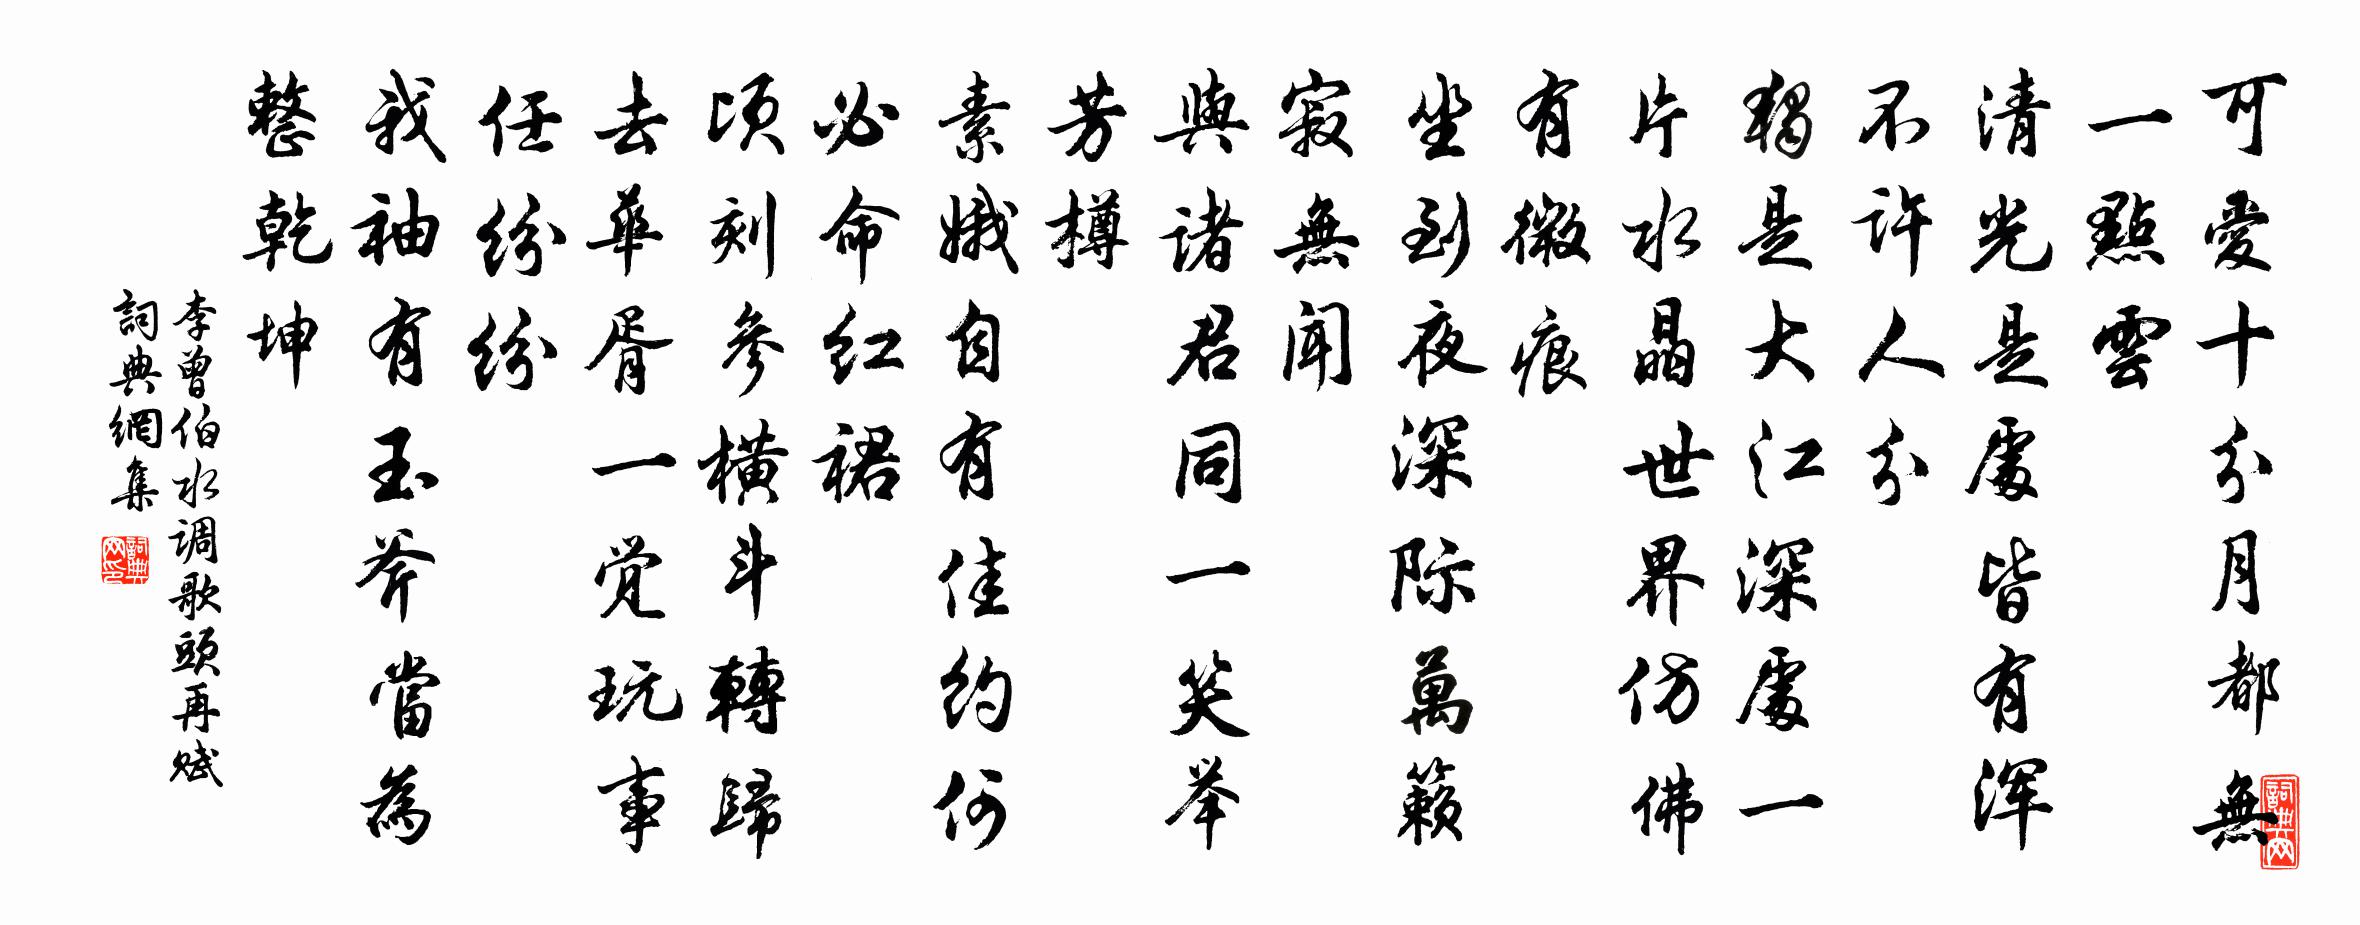 可愛十分月都無
一點雲
清光是處皆有浑
不许人分
獨是大江深處一
片水晶世界仿佛
有微痕
坐到夜深际萬籟
寂無闻
與诸君同一笑举
芳樽
素娥自有佳约何
必命红裙
顷刻參横斗轉歸
去華胥一觉玩事
任纷纷
我袖有玉斧當為
整乾坤
李曾伯水调歌頭再赋
詞典網集
詞典网
詞典网印